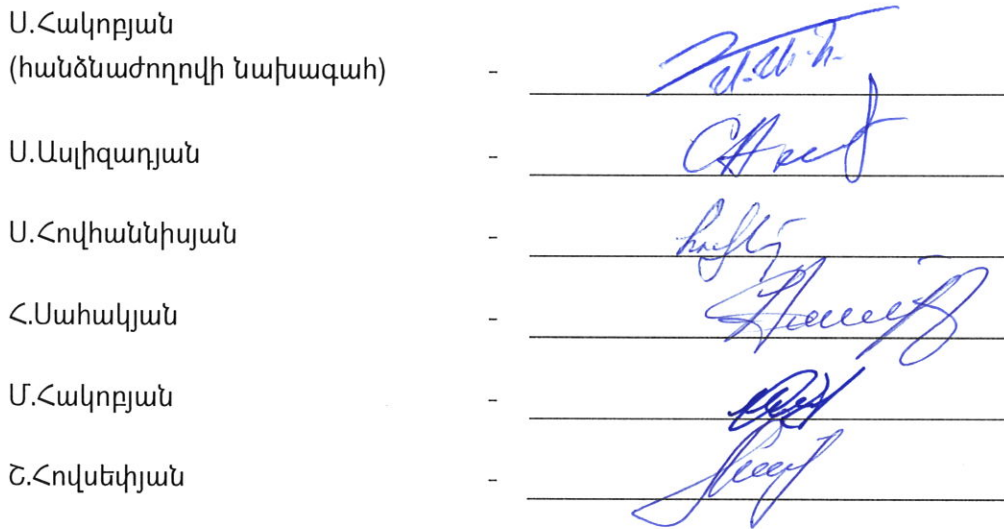 Ս.Հակոբյան
(հանձնաժողովի նախագահ) -
Ս.Ասլիզադյան -
Ս.Հովհաննիսյան -
Հ.Սահակյան -
Մ.Հակոբյան -
Շ.Հովսեփյան -